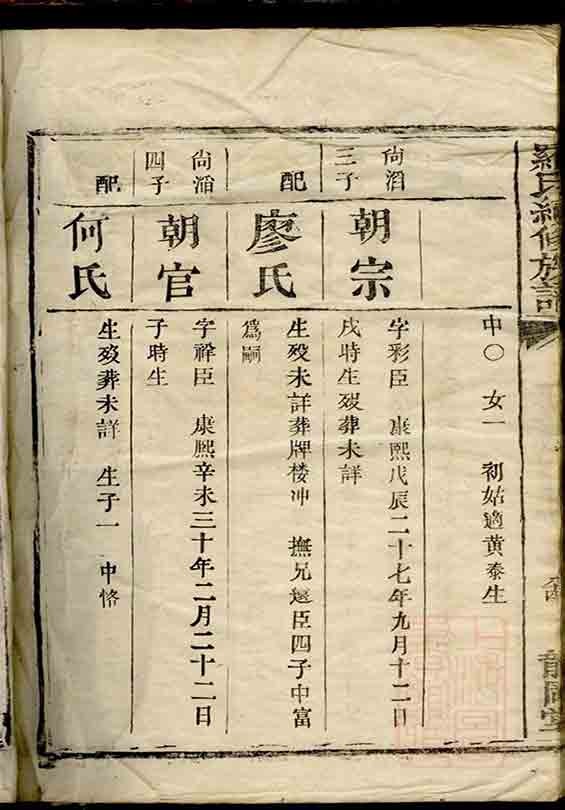 羅氏續修族譜
中〇 女一 初姑適黄泰生
尙滔三子
朝宗
字彩臣 康熙戊辰二十七年九月十二日
戌時生殁葬未詳
配
廖氏
生殁未詳葬牌楼冲 撫兄還臣四子中富
爲嗣
尙滔四子
朝官
字祥臣 康熙辛未三十年二月二十二日
子時生
配
何氏
生殁葬未詳 生子一 中恪